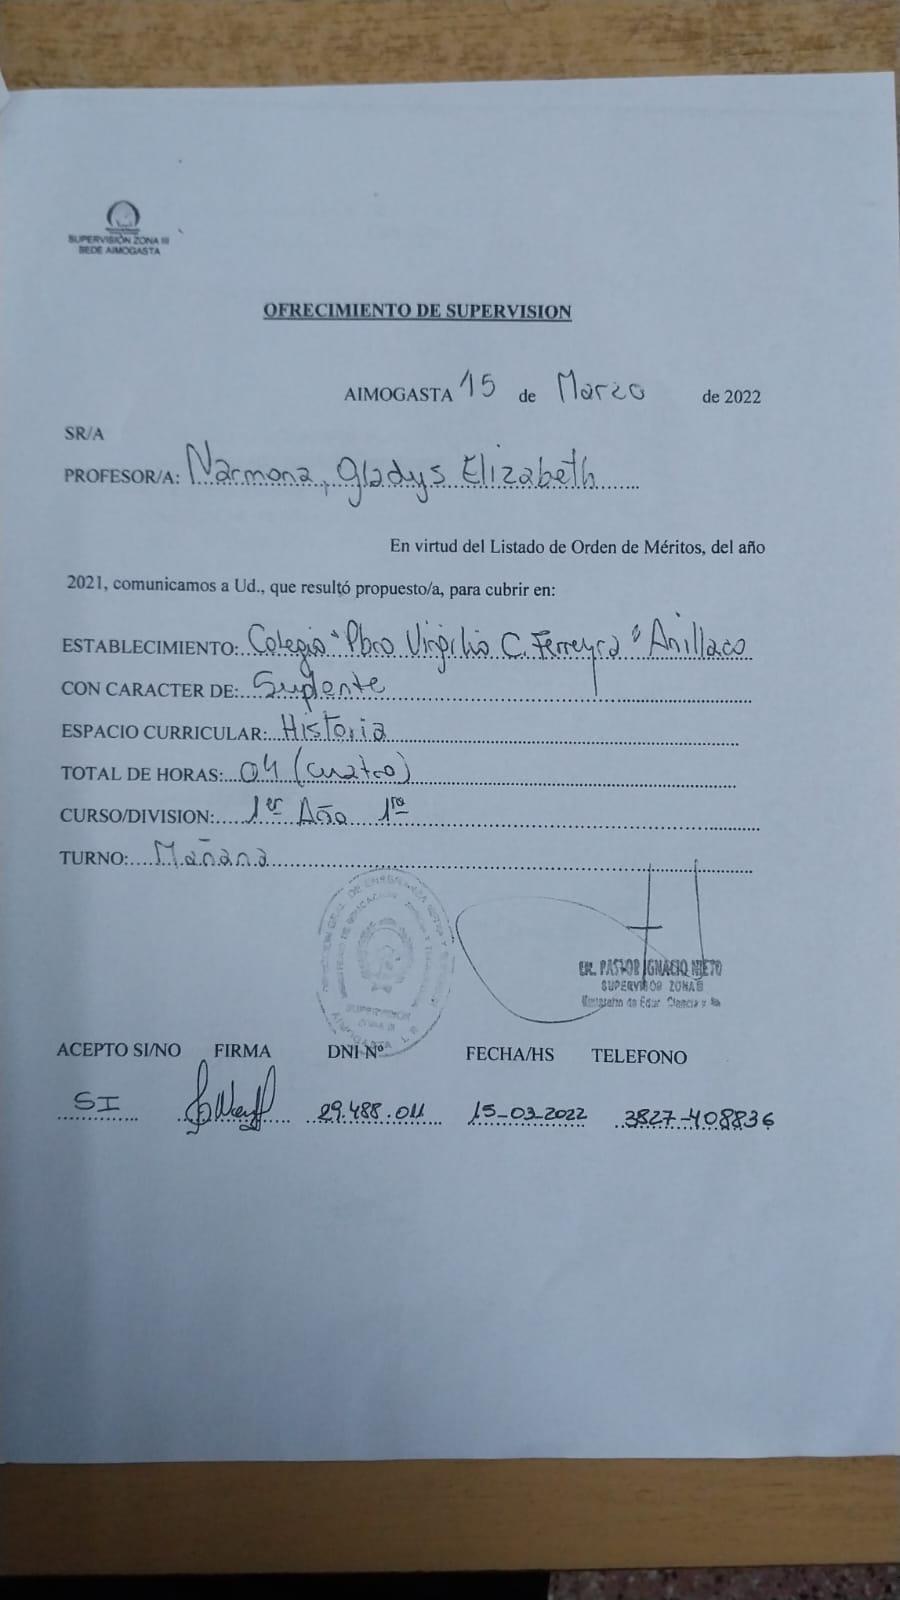 SUPERVISIÓN ZONA III
SEDE AIMOGASTA
OFRECIMIENTO DE SUPERVISION
AIMOGASTA 15 de Marzo de 2022
SR/A
PROFESOR/A: Narmona, Gladys Elizabeth
En virtud del Listado de Orden de Méritos, del año
2021, comunicamos a Ud., que resultó propuesto/a, para cubrir en:
ESTABLECIMIENTO: Colegio "Pbro Virgilio C. Ferreyra" Anillaco
CON CARACTER DE: Suplente
ESPACIO CURRICULAR: Historia
TOTAL DE HORAS: 04 (cuatro)
CURSO/DIVISION: 1er Año 1ra
TURNO: Mañana
SUPERVISION
ZONA III
AIMOGASTA L. R.
LIC. PASTOR IGNACIO NIETO
SUPERVISOR ZONA III
Ministerio de Educ. Ciencia y
ACEPTO SI/NO FIRMA DNI Nº FECHA/HS TELEFONO
SI 29.488.011 15-03-2022 3827-408836